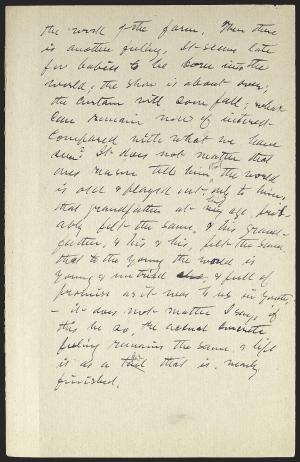 the work of the farm. Then there
is another feeling. It seems late
for babies to be born into the
world; the show is about over;
the curtain will soon fall; what
can remain now of interest
compared with what we have
seen? It does not matter that
ones reason tells him, the world
is old & played out, only to him,
that grandfather at his age, prob
ably felt the same, & his grand-
father, & his & his, felt the same
that to the young the world is
young & untried & full of
promise as it was to us in youth,
- it does not matter I say, if
this be so, the actual concrete
feeling remains the same & life
is as a that is nearly
finished.